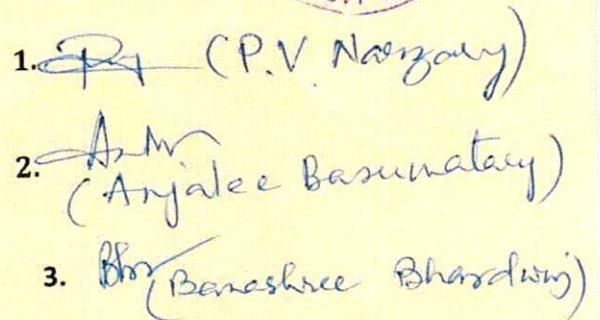 1. (P.V. Narzary)
2.
(Anjalee Basumatary)
3. (Banashree Bhardwaj)